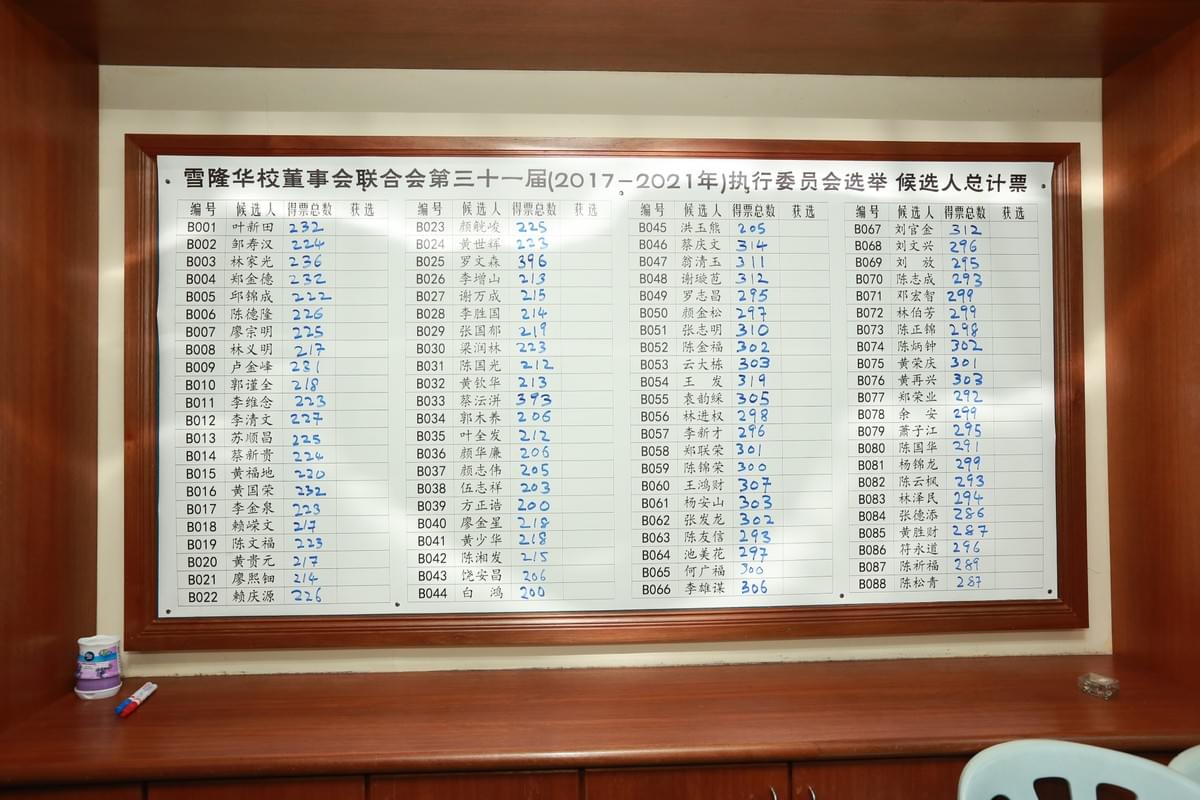 雪隆华校董事会联合会第三十一届(2017-2021年)执行委员会选举 候选人总计票
编号 候选人 得票总数 获选
B001 叶新田 232
B002 邹寿汉 224
B003 林家光 236
B004 郑金德 232
B005 邱锦成 222
B006 陈德隆 226
B007 廖宗明 225
B008 林义明 217
B009 卢金峰 231
B010 郭谨全 218
B011 李维念 223
B012 李清文 227
B013 苏顺昌 225
B014 蔡新贵 224
B015 黄福地 220
B016 黄国荣 232
B017 李金泉 223
B018 赖嵘文 217
B019 陈文福 223
B020 黄贵元 217
B021 廖熙钿 214
B022 赖庆源 226
编号 候选人 得票总数 获选
B023 颜觥峻 225
B024 黄世辉 223
B025 罗文森 396
B026 李增山 213
B027 谢万成 215
B028 李胜国 214
B029 张国郁 219
B030 梁润林 223
B031 陈国光 212
B032 黄钦华 213
B033 蔡沄洴 393
B034 郭木养 206
B035 叶金发 212
B036 颜华廉 206
B037 颜志伟 205
B038 伍志祥 203
B039 方正诰 200
B040 廖金星 218
B041 黄少华 218
B042 陈湘发 215
B043 饶安昌 206
B044 白 鸿 200
编号 候选人 得票总数 获选
B045 洪玉熊 205
B046 蔡庆文 314
B047 翁清玉 311
B048 谢璇苞 312
B049 罗志昌 295
B050 颜金松 297
B051 张志明 310
B052 陈金福 302
B053 云大栋 303
B054 王 发 319
B055 袁韵綵 305
B056 林进权 298
B057 李新才 296
B058 郑联荣 301
B059 陈锦荣 300
B060 王鸿财 307
B061 杨安山 303
B062 张发龙 302
B063 陈友信 293
B064 池美花 297
B065 何广福 300
B066 李雄谋 306
编号 候选人 得票总数 获选
B067 刘官金 312
B068 刘文兴 296
B069 刘 放 295
B070 陈志成 293
B071 邓宏智 299
B072 林伯芳 299
B073 陈正锦 298
B074 陈炳钟 302
B075 黄荣庆 301
B076 黄再兴 303
B077 郑荣业 292
B078 余 安 299
B079 萧子江 295
B080 陈国华 291
B081 杨锦龙 299
B082 陈云枫 293
B083 林泽民 294
B084 张德添 286
B085 黄胜财 287
B086 符永道 296
B087 陈祈福 289
B088 陈松青 287